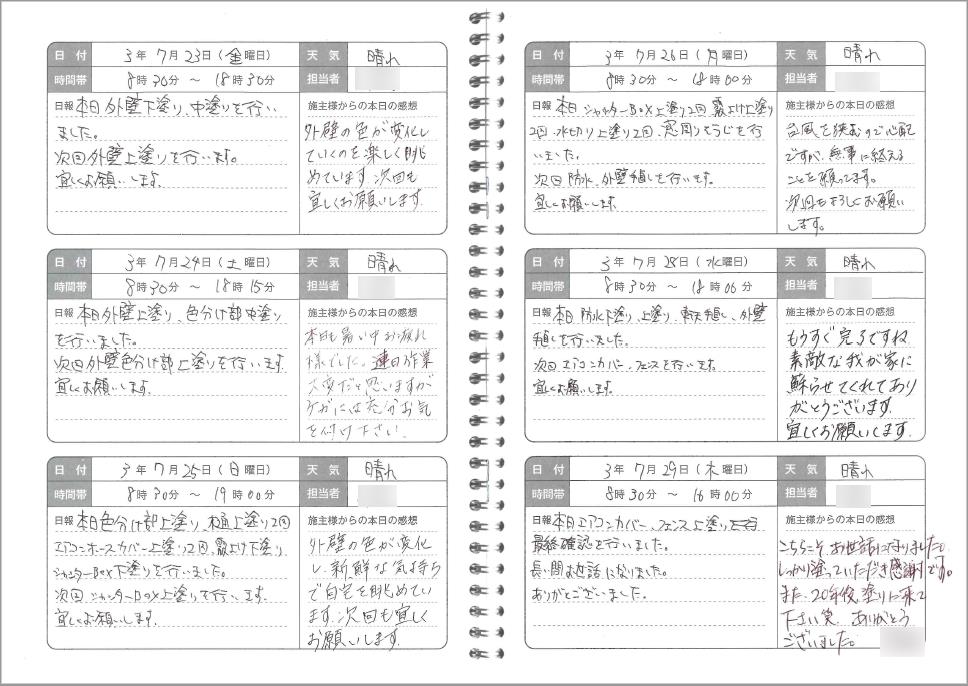 日付 3年 7月23日(金曜日) 天気 晴れ
時間帯 8時30分 ～ 18時30分 担当者
日報 本日外壁下塗り、中塗りを行い
ました。
次回外壁上塗りを行います。
宜しくお願いします。
施主様からの本日の感想
外壁の色が変化し
ていくのを楽しく眺
めています。次回も
宜しくお願いします。
日付 3年 7月24日(土曜日) 天気 晴れ
時間帯 8時30分 ～ 18時15分 担当者
日報 本日外壁上塗り、色分け部中塗り
を行いました。
次回外壁色分け部上塗りを行います。
宜しくお願いします。
施主様からの本日の感想
本日も暑い中お疲れ
様でした。連日の作業
大変だと思いますが
ケガには充分お気
を付け下さい。
日付 3年 7月25日(日曜日) 天気 晴れ
時間帯 8時30分 ～ 19時00分 担当者
日報 本日色分け部上塗り、樋上塗り2回
エアコンホースカバー上塗り2回、霧よけ下塗り
シャッターBox下塗りを行いました。
次回、シャッターBox上塗りを行います。
宜しくお願いします。
施主様からの本日の感想
外壁の色が変化
し、新鮮な気持ち
で自宅を眺めてい
ます。次回も宜しく
お願いします。
日付 3年 7月26日(月曜日) 天気 晴れ
時間帯 8時30分 ～ 18時00分 担当者
日報 本日シャッターBox上塗り2回、霧よけ上塗り
2回、水切り上塗り2回、窓周りそうじを行
いました。
次回防水、外壁手直しを行います。
宜しくお願いします。
施主様からの本日の感想
台風を挟むので心配
ですが、無事に終える
ことを願ってます。
次回もよろしくお願い
します。
日付 3年 7月28日(水曜日) 天気 晴れ
時間帯 8時30分 ～ 18時00分 担当者
日報 本日防水下塗り、上塗り、軒天手直し、外壁
手直しを行いました。
次回エアコンカバー、フェンスを行います。
宜しくお願いします。
施主様からの本日の感想
もうすぐ完了ですね
素敵な我が家に
蘇らせてくれてあり
がとうございます。
宜しくお願いします。
日付 3年 7月29日(木曜日) 天気 晴れ
時間帯 8時30分 ～ 16時00分 担当者
日報 本日エアコンカバー、フェンス上塗りを行
最終確認を行いました。
長い間お世話になりました。
ありがとございました。
施主様からの本日の感想
こちらこそ、お世話になりました。
しっかり塗っていただき感謝です。
また、20年後塗りに来て
下さい笑。ありがとう
ございました。